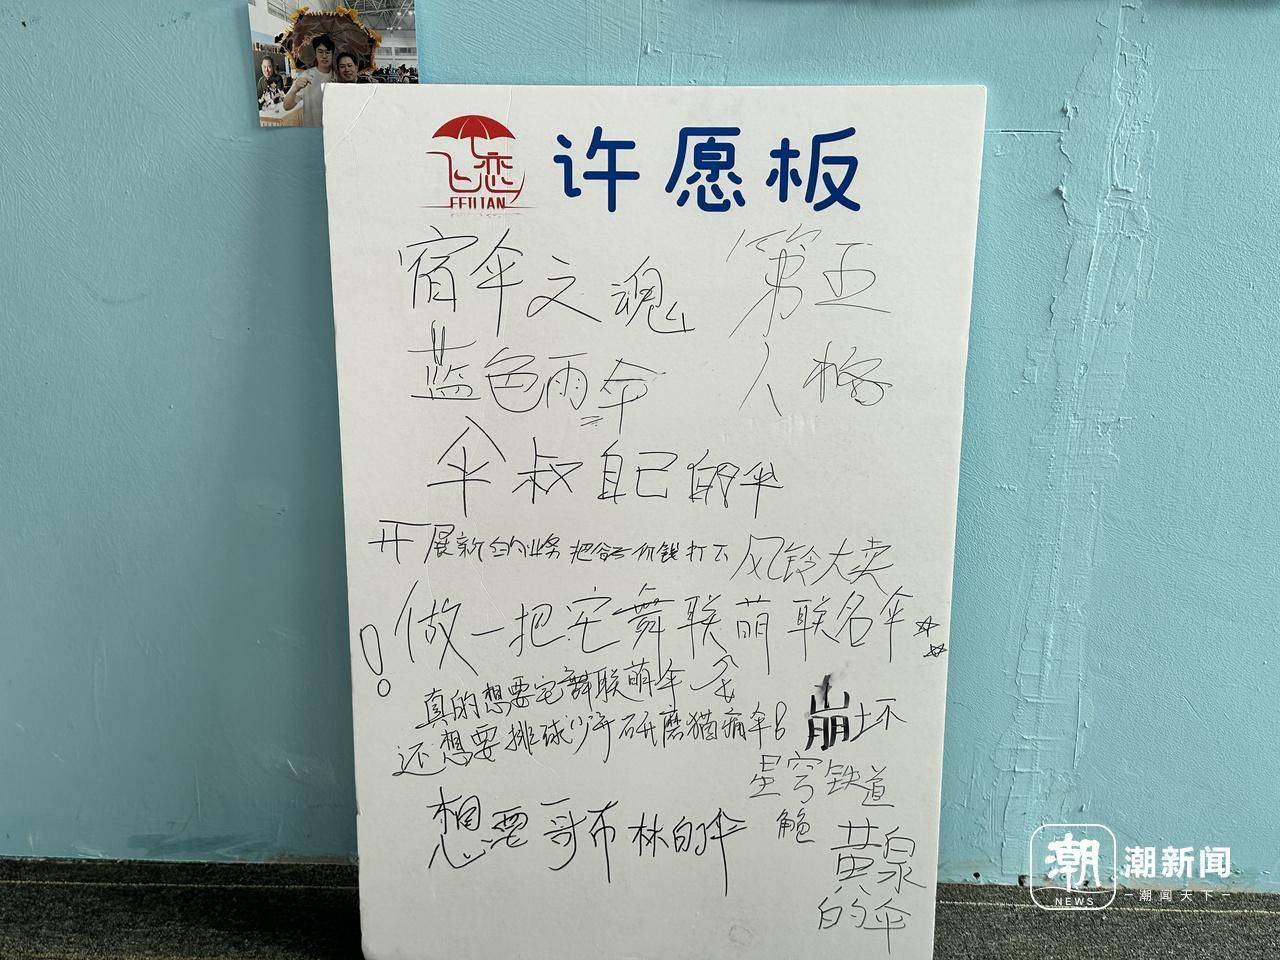 飞恋
FEILIAN
许愿板
宿伞之魂
第五
人格
蓝色雨伞
伞叔自己的伞
开展新的业务 把谷子价钱打下
风铃大卖
做一把宅舞联萌联名伞
!
真的想要宅舞联萌伞
还想要排球少年研磨猫痛伞!
崩坏
星穹铁道
黄泉
的伞
想要哥布林的伞
潮
NEWS
潮新闻
潮闻天下